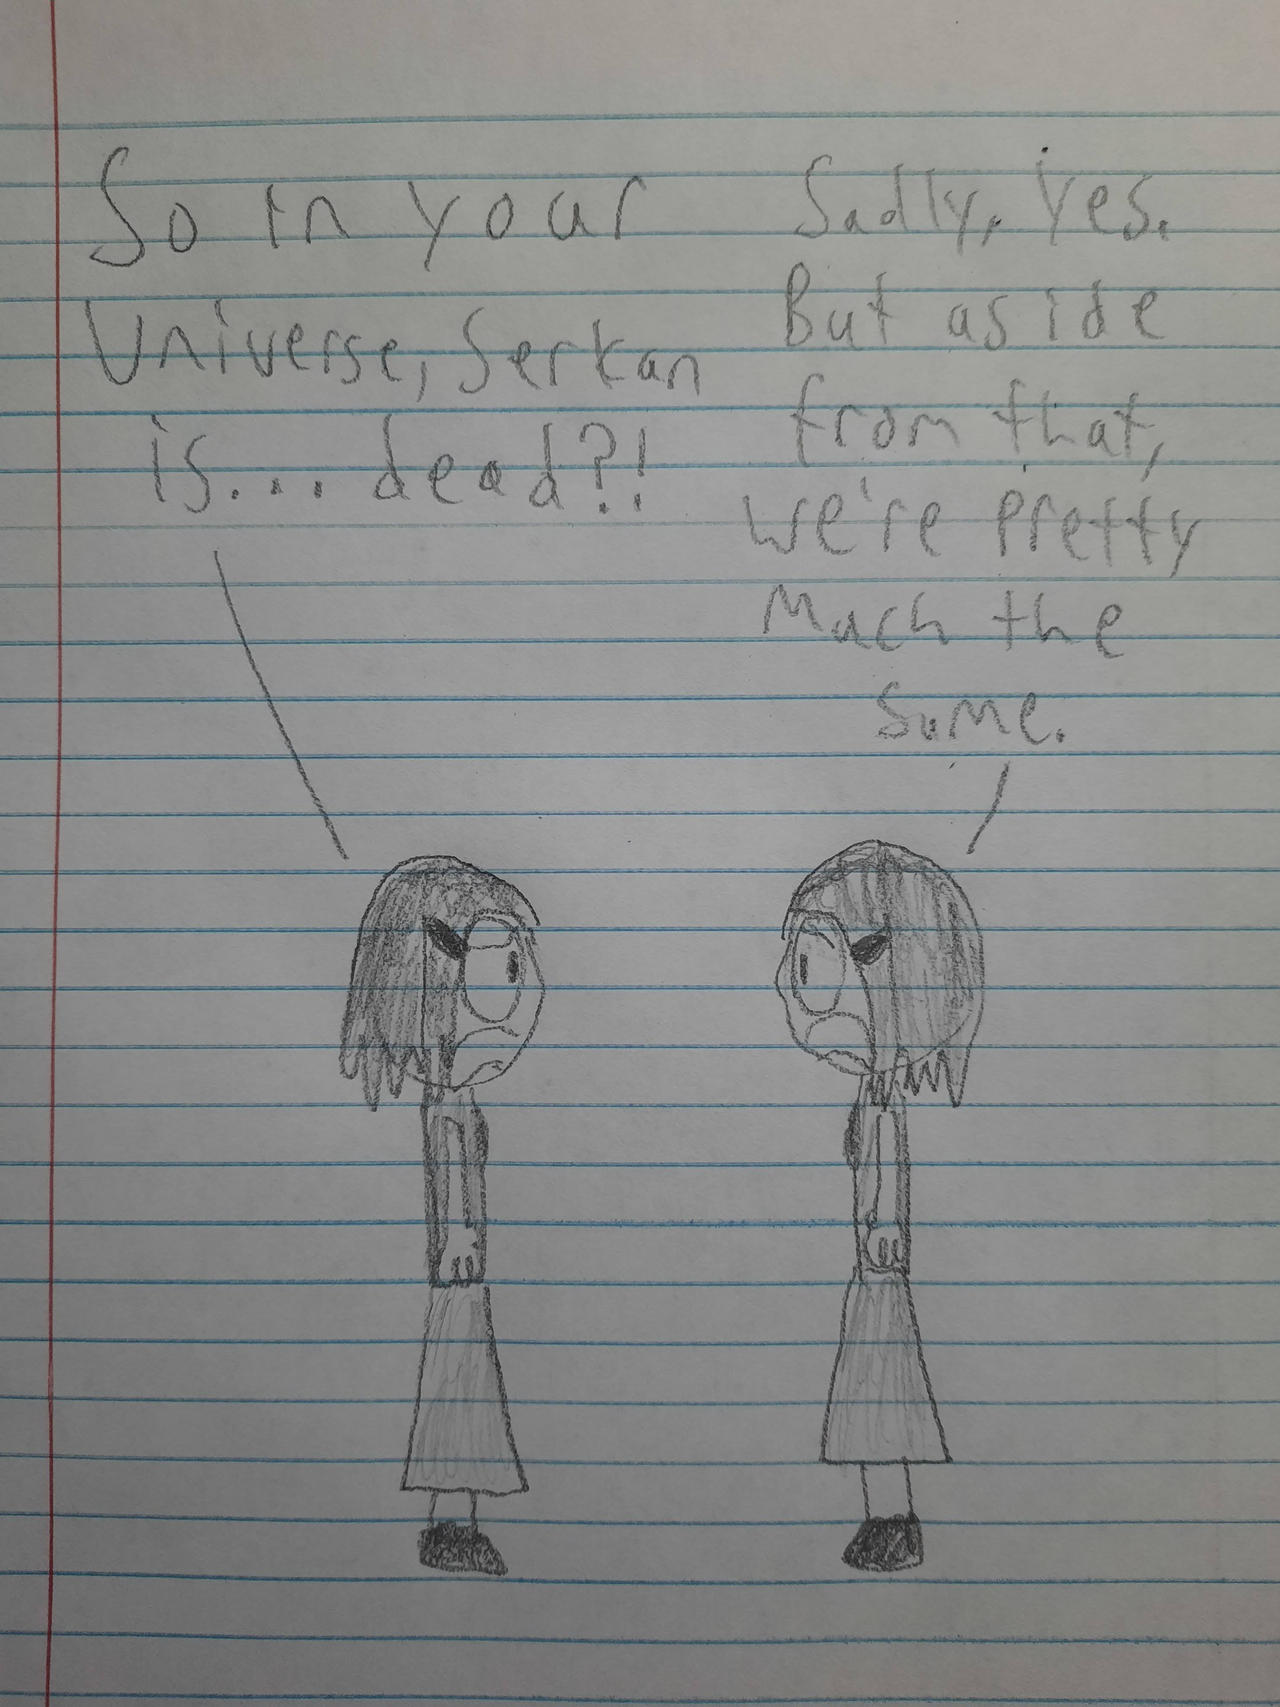 So in your
Universe, Serkan
is... dead?!
Sadly, yes.
But aside
from that,
we're pretty
Much the
same.